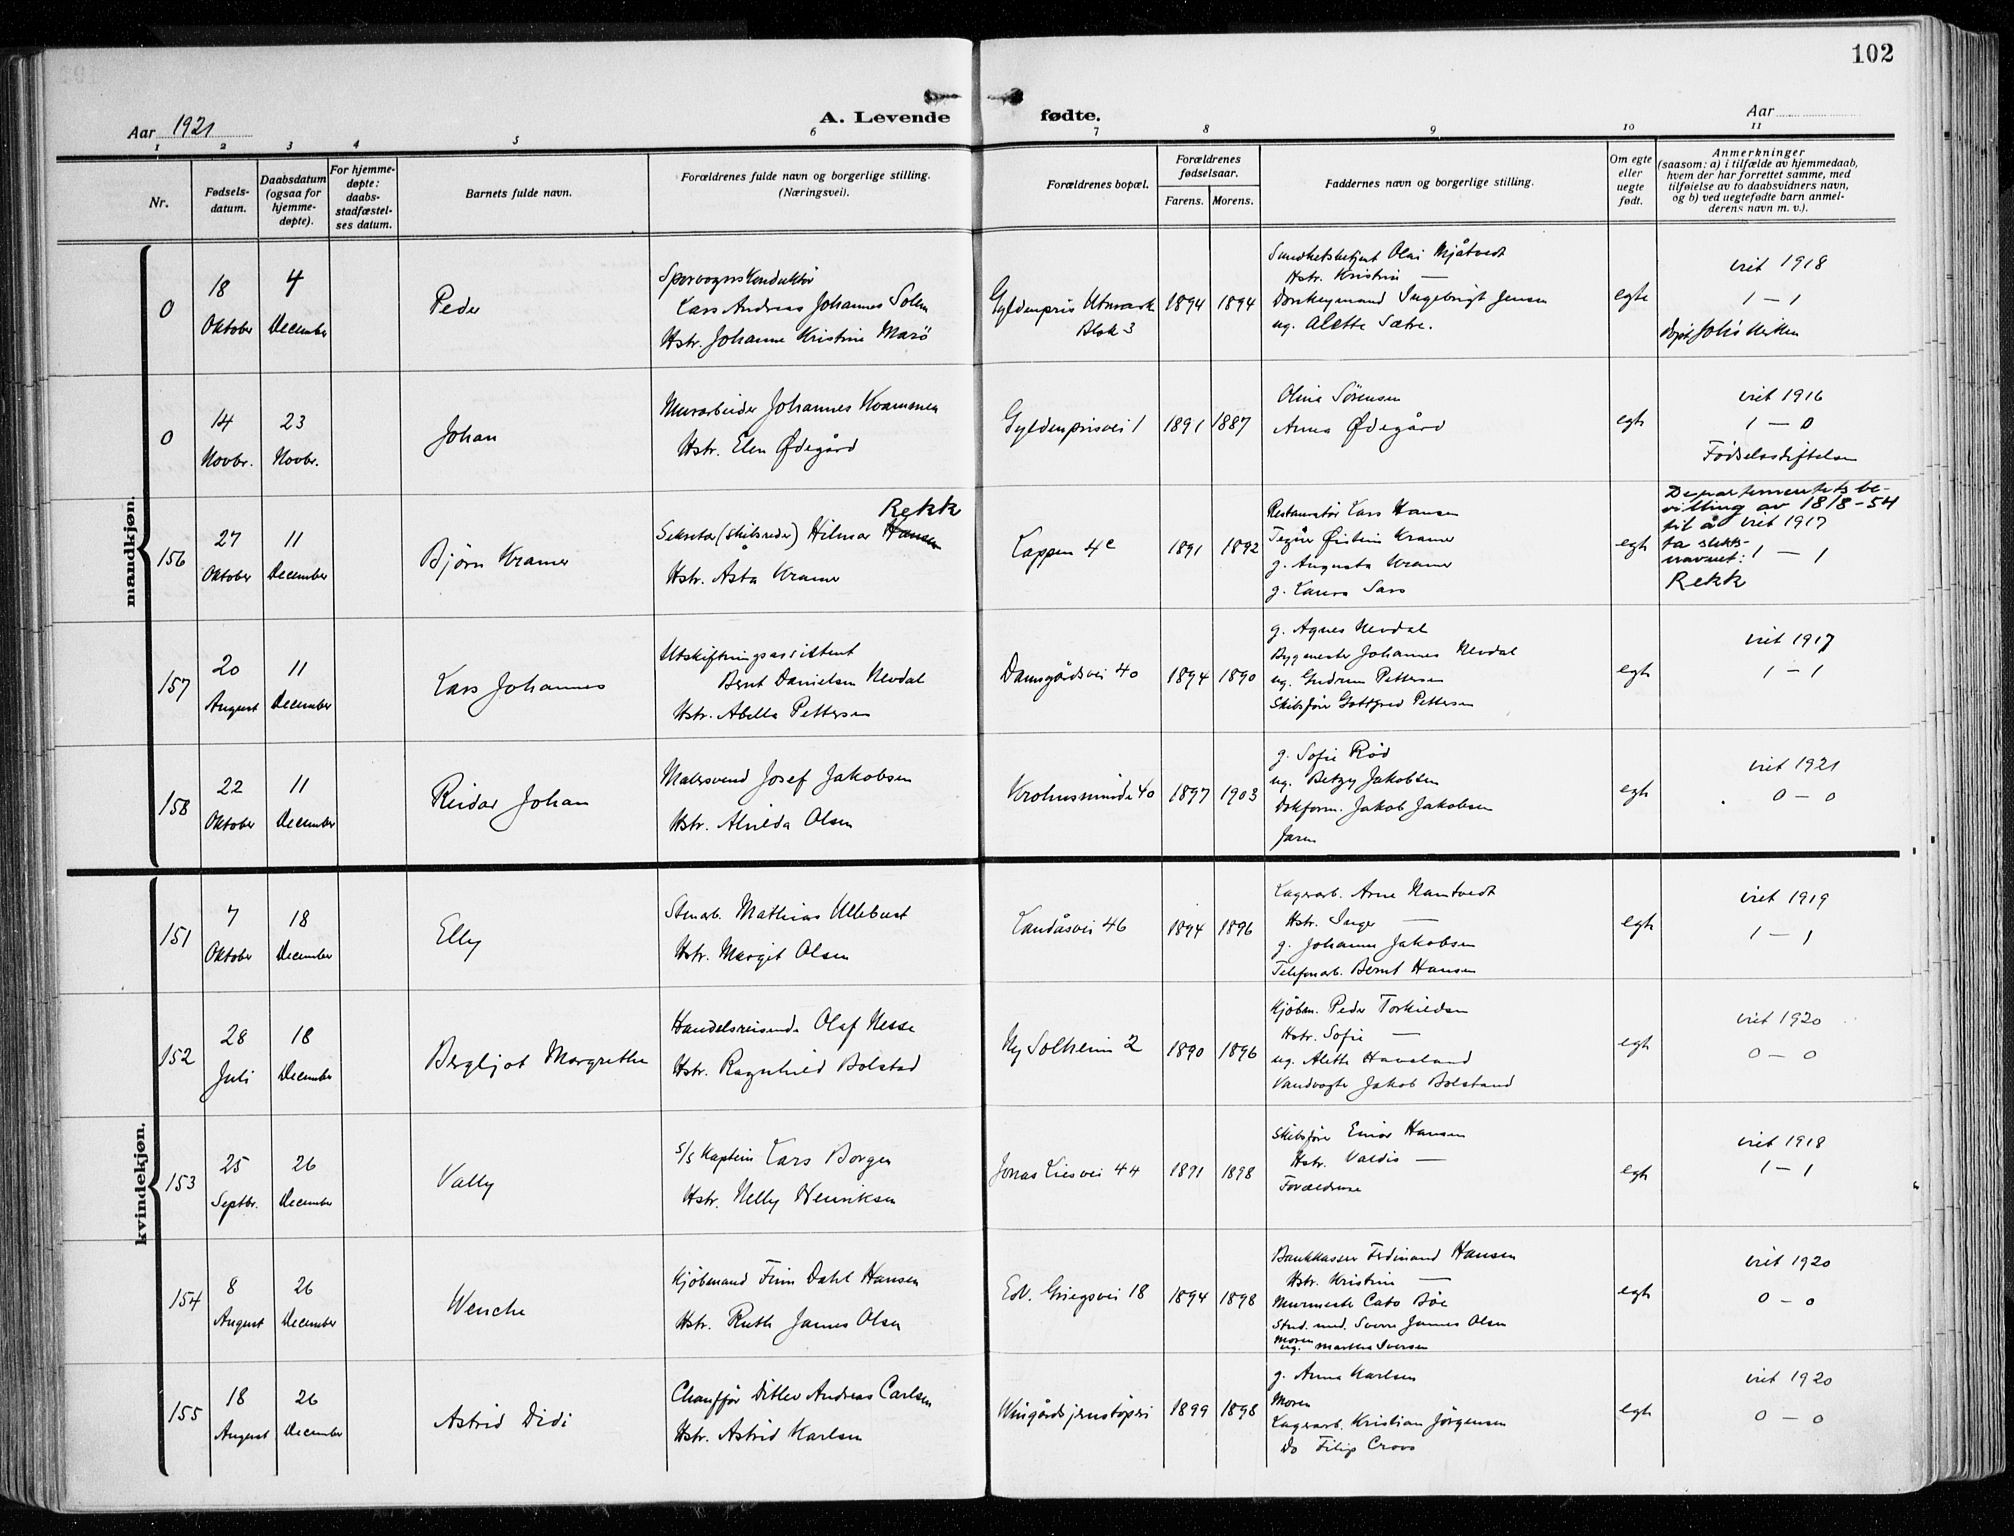 102
Aar 1921
A. Levende fødte.
Aar
1 2 3 4 5 6 7 8 9 10 11
Nr.
Fødsels-
datum.
Daabsdatum
(ogsaa for
hjemme-
døpte).
For hjemme-
døpte:
daabs-
stadfæstel-
ses datum.
Barnets fulde navn.
Forældrenes fulde navn og borgerlige stilling.
(Næringsvei).
Forældrenes bopæl.
Forældrenes
fødselsaar.
Farens. Morens.
Faddernes navn og borgerlige stilling.
Om egte
eller
uegte
født.
Anmerkninger
(saasom: a) i tilfælde av hjemmedaab,
hvem der har forrettet samme, med
tilføielse av to daabsvidners navn,
og b) ved uegtefødte barn anmel-
derens navn m. v.).
mandkjøn.
0
18
Oktober
4
December
Peder
Sporvognskonduktør
Lars Andreas Johannes Solem
Hstr. Johanne Kristine Marø
Gyldenpris Utmark
Blok 3
1894 1894
Sundhetsbetjent Olai Mjåtvedt
Hstr. Kristine —
Donkeymand Ingebrigt Jensen
ug. Alette Sætre.
egte
viet 1918
1 – 1
døpt
0
14
Novbr.
23
Novbr.
Johan
Murarbeider Johannes Kvammen
Hstr. Elen Ødegård
Gyldenprisvei 1
1891 1887
Olina Sørensen
Anna Ødegård
egte
viet 1916
1 – 0
Fødselsstiftelsen
156
27
Oktober
11
December
Bjørn Kramer
Rekk
Sekretær (skibsreder) Hilmar Hansen
Hstr. Åsta Kramer
Lappen 4c
1891 1892
Restauratør Lars Hansen
Kramer
g. Augusta Kramer
g. Laura Sars
egte
Departementets be-
villing av 18/8-54
til å viet 1917
ta slekts-
navnet: 1 – 1
Rekk
157
20
August
11
December
Lars Johannes
Utskiftningsassistent
Bernt Danielsen Nevdal
Hstr. Abella Pettersen
Damsgårdsvei 40
1894 1890
g. Agnes Nevdal
Bygmester Johannes Nevdal
ug. Gudrun Pettersen
Skibsfører Gottfred Pettersen
egte
viet 1917
1 – 1
158
22
Oktober
11
December
Reidar Johan
Malersvend Josef Jakobsen
Hstr. Alvilda Olsen
Krohnsminde 40
1897 1903
g. Sofie Rød
ug. Betzy Jakobsen
Dokform. Jakob Jakobsen
Faren
egte
viet 1921
0 – 0
kvindekjøn.
151
7
Oktober
18
December
Elly
Stenarb. Mathias Ullebust
Hstr. Margit Olsen
Landåsvei 46
1894 1896
Lagerarb. Arne Namtvedt
Hstr. Inger —
g. Johanne Jakobsen
Telefonarb. Bernt Hansen
egte
viet 1919
1 – 1
152
28
Juli
18
December
Bergljot Margrethe
Handelsreisende Olaf Nesse
Hstr. Ragnhild Bolstad
Ny Solheim 2
1890 1896
Kjøbm. Peder Torkildsen
Hstr. Sofie —
ug. Alette Haveland
Vandvogter Jakob Bolstad
egte
viet 1920
0 – 0
153
25
Septbr.
26
December
Vally
S/S Kaptein Lars Borgen
Hstr. Nelly Henriksen
Jonas Liesvei 44
1891 1898
Skibsfører Einar Hansen
Hstr. Valdis —
Forældrene
egte
viet 1918
1 – 1
154
8
August
26
December
Wenche
Kjøbmand Finn Dahl Hansen
Hstr. Ruth James Olsen
Edv. Griegsvei 18
1894 1898
Bankkasserer Ferdinand Hansen
Hstr. Kristine —
Murmester Cato Bøe
Stud. med. Sverre James Olsen
Moren
ug. Martha Iversen
egte
viet 1920
0 – 0
155
18
August
26
December
Astrid Didi
Chauffør Ditlev Andreas Carlsen
Hstr. Astrid Karlsen
Wingårds jernstøperi
1899 1898
g. Anna Karlsen
Moren
Lagerarb. Kristian Jørgensen
Do Filip Croos
egte
viet 1920
0 – 0